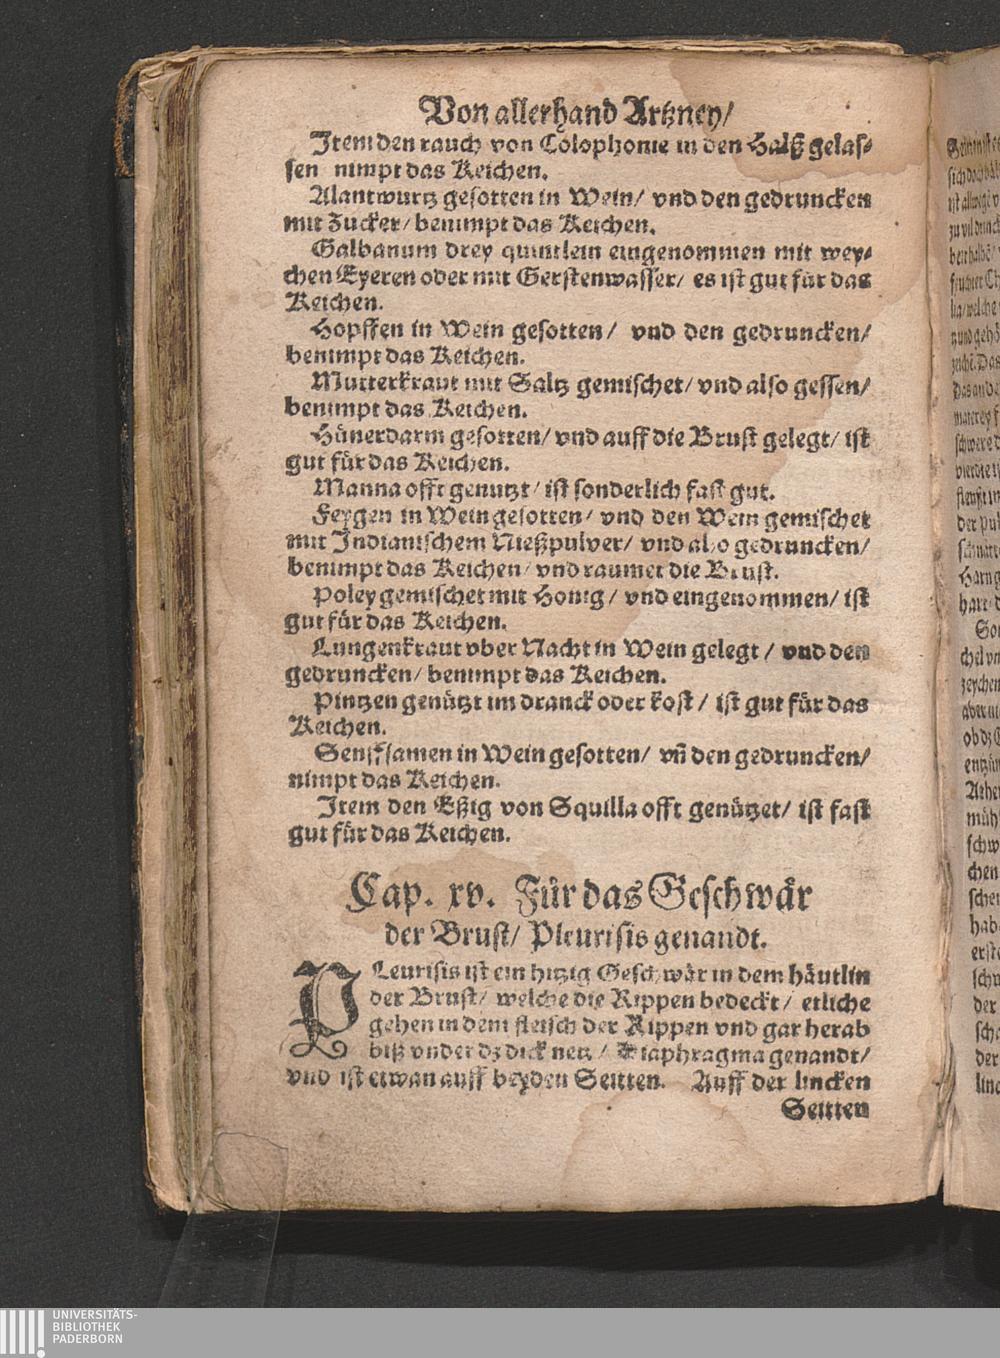 Von allerhand Artzney/
Item den rauch von Colophonie in den Halß gelas⸗
sen nimpt das Keichen.
Alantwurtz gesotten in Wein/ vnd den gedruncken
mit Zucker/ benimpt das Keichen.
Galbanum drey quintlein eingenommen mit wey⸗
chen Eyeren oder mit Gerstenwasser/ es ist gut für das
Keichen.
Hopffen in Wein gesotten/ vnd den gedruncken/
benimpt das Keichen.
Mutterkraut mit Saltz gemischet/ vnd also gessen/
benimpt das Keichen.
Hünerdarm gesotten/ vnd auff die Brust gelegt/ ist
gut für das Keichen.
Manna offt genutzt/ ist sonderlich fast gut.
Feygen in Wein gesotten/ vnd den Wein gemischet
mit Indianischem Nießpulver/ vnd also gedruncken/
benimpt das Keichen/ vnd raumet die Brust.
Poley gemischet mit Honig/ vnd eingenommen/ ist
gut für das Keichen.
Lungenkraut vber Nacht in Wein gelegt/ vnd den
gedruncken/ benimpt das Keichen.
Pintzen genützt im dranck oder kost/ ist gut für das
Keichen.
Senffsamen in Wein gesotten/ vñ den gedruncken/
nimpt das Keichen.
Item den Eßig von Squilla offt genützet/ ist fast
gut für das Keichen.
Cap. xv. Für das Geschwär
der Brust/ Pleurisis genandt.
PLeurisis ist ein hitzig Geschwär in dem häutlin
der Brust/ welche die Rippen bedeckt/ etliche
gehen in dem fleisch der Rippen vnd gar herab
biß vnder dz dick netz/ Diaphragma genandt/
vnd ist etwan auff beyden Seitten. Auff der lincken
Seitten
UNIVERSITÄTS-
BIBLIOTHEK
PADERBORN